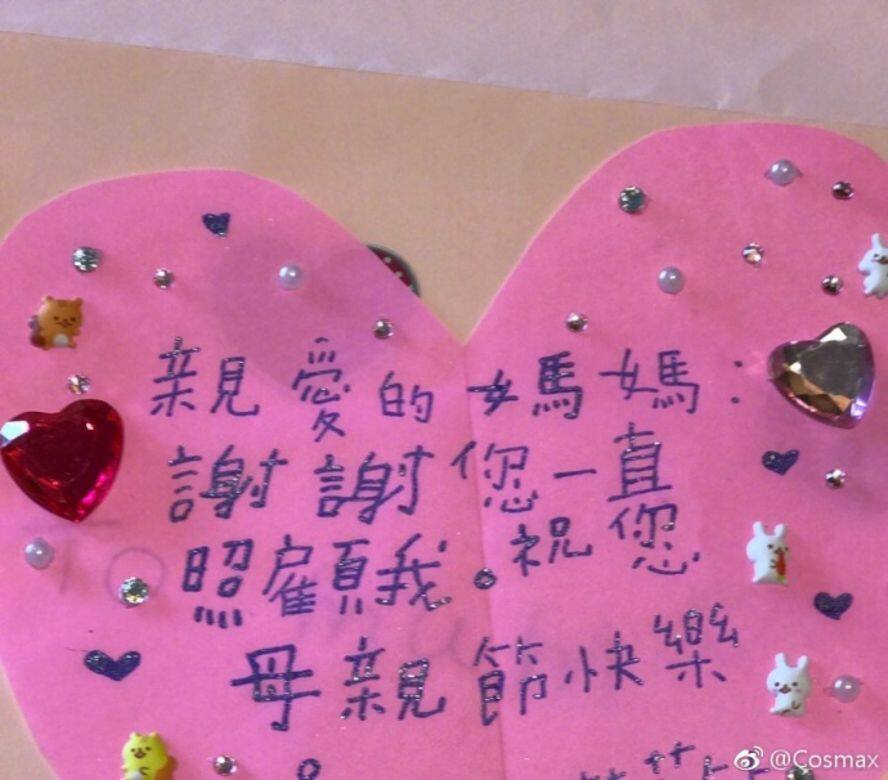 親愛的媽媽：
謝謝您一直
照顧我。祝您
母親節快樂
。
@Cosmax